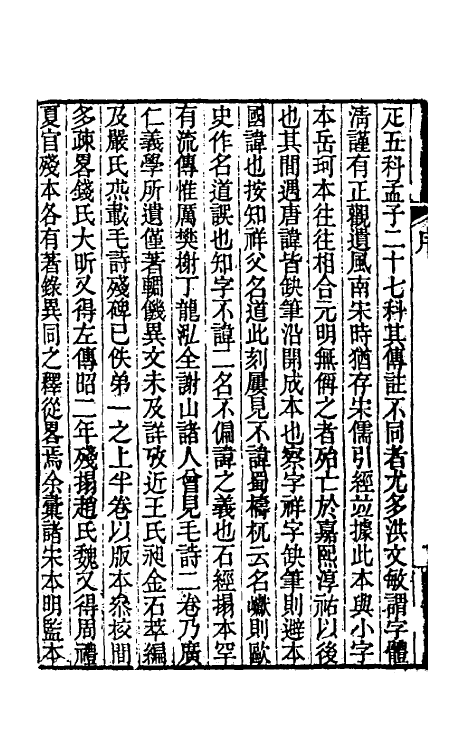 疋五科孟子二十七科其傳註不同者尤多洪文敏謂字體
清謹有正觀遺風南宋時猶存宋儒引經並據此本與小字
本岳珂本往往相合元明無偁之者殆亡於嘉熙淳祐以後
也其間遇唐諱皆缺筆沿開成本也察字祥字缺筆則避本
國諱也按知祥父名道此刻屢見不諱蜀檮杌云名嶬則歐
史作名道誤也知字不諱二名不偏諱之義也石經搨本罕
有流傳惟厲樊榭丁龍泓全謝山諸人曾見毛詩二卷乃廣
仁義學所遺僅著輖饑異文未及詳攷近王氏昶金石萃編
及嚴氏杰載毛詩殘碑已佚弟一之上半卷以版本叅校間
多疎畧錢氏大昕又得左傳昭二年殘搨趙氏魏又得周禮
夏官殘本各有著錄異同之釋從畧焉余彙諸宋本明監本
序